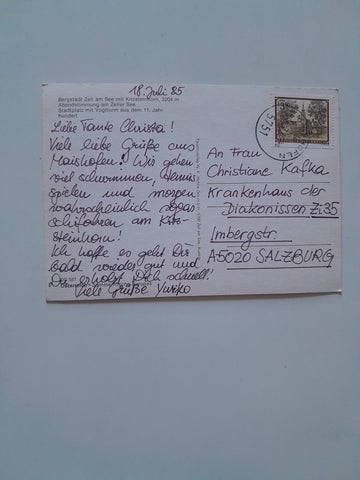 18. Juli 85
Bergstadt Zell am See mit Kitzsteinhorn, 3204 m
Abendstimmung am Zeller See
Stadtplatz mit Vogtturm aus dem 11. Jahr-
hundert
Liebe Tante Christa!
Viele liebe Grüße aus
Maishofen! Wir gehen
viel schwimmen, Tennis
spielen und morgen
wahrscheinlich sogar
schifahren am Kitz-
steinhorn!
Ich hoffe es geht Dir
bald wieder gut und
Du erholst Dich schnell!
Viele Grüße
5751
An Frau
Christiane Kafka
Krankenhaus der
Diakonissen Z:35
Imbergstr.
A5020 SALZBURG